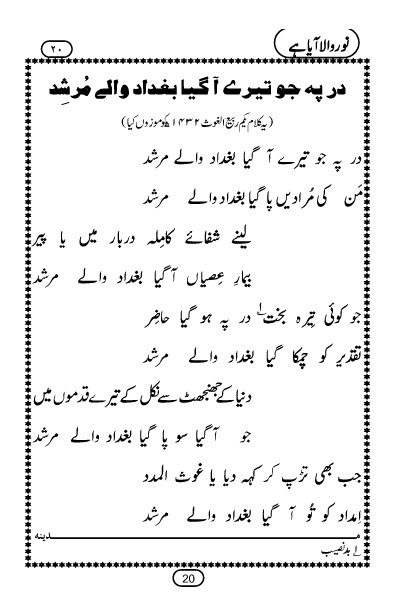 نور والا آیا ہے
۲۰
در پہ جو تیرے آ گیا بغداد والے مُرشِد
(یہ کلام یکم ربیع الغوث ۱۴۳۲ھ کو موزوں کیا)
در پہ جو تیرے آ گیا بغداد والے مرشد
مَن کی مُرادیں پا گیا بغداد والے مرشد
لینے شفائے کامِلہ دربار میں یا پیر
بیمارِ عِصیاں آ گیا بغداد والے مرشد
جو کوئی تِیرہ بخت۱ در پہ ہو گیا حاضِر
تقدیر کو چمکا گیا بغداد والے مرشد
دنیا کے جھنجھٹ سے نکل کے تیرے قدموں میں
جو آ گیا سو پا گیا بغداد والے مرشد
جب بھی تڑپ کر کہہ دیا یا غوث المدد
اِمداد کو تُو آ گیا بغداد والے مرشد
مدینہ
۱ بدنصیب
20